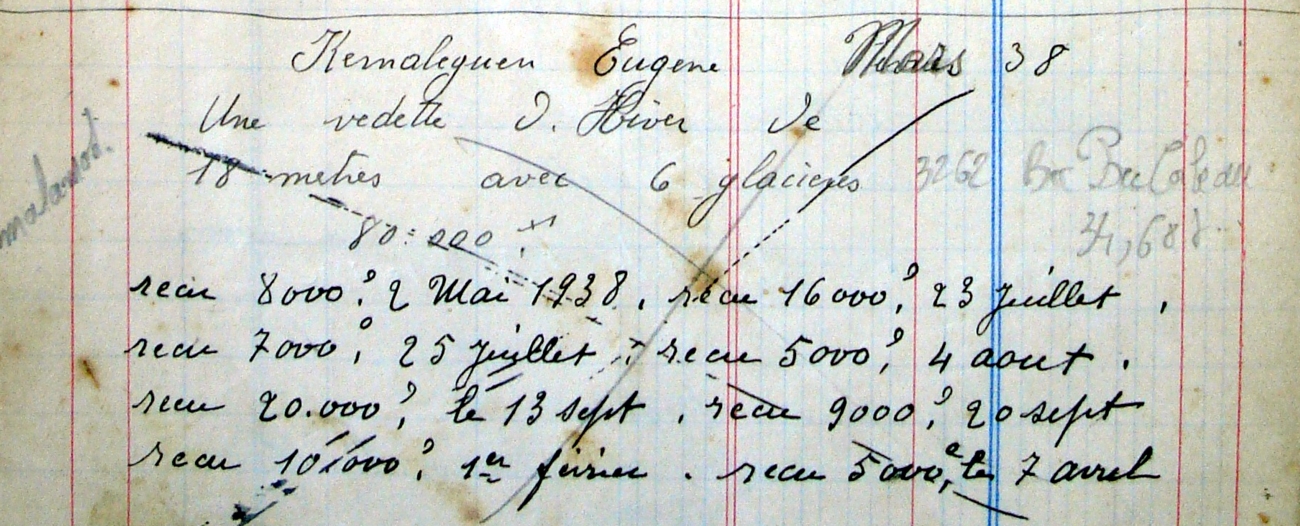 Kernaleguen Eugene Mars 38
Une vedette d. Hiver de
18 metres avec 6 glacieres 3262
80.000 f
34,68
recu 8000f, 2 Mai 1938, recu 16000f, 23 juillet,
recu 7000f, 25 juillet, recu 5000f, 4 aout.
recu 20.000f, le 13 sept, recu 9000f, 20 sept
recu 10.000f, 1er février. recu 5000f, le 7 avril